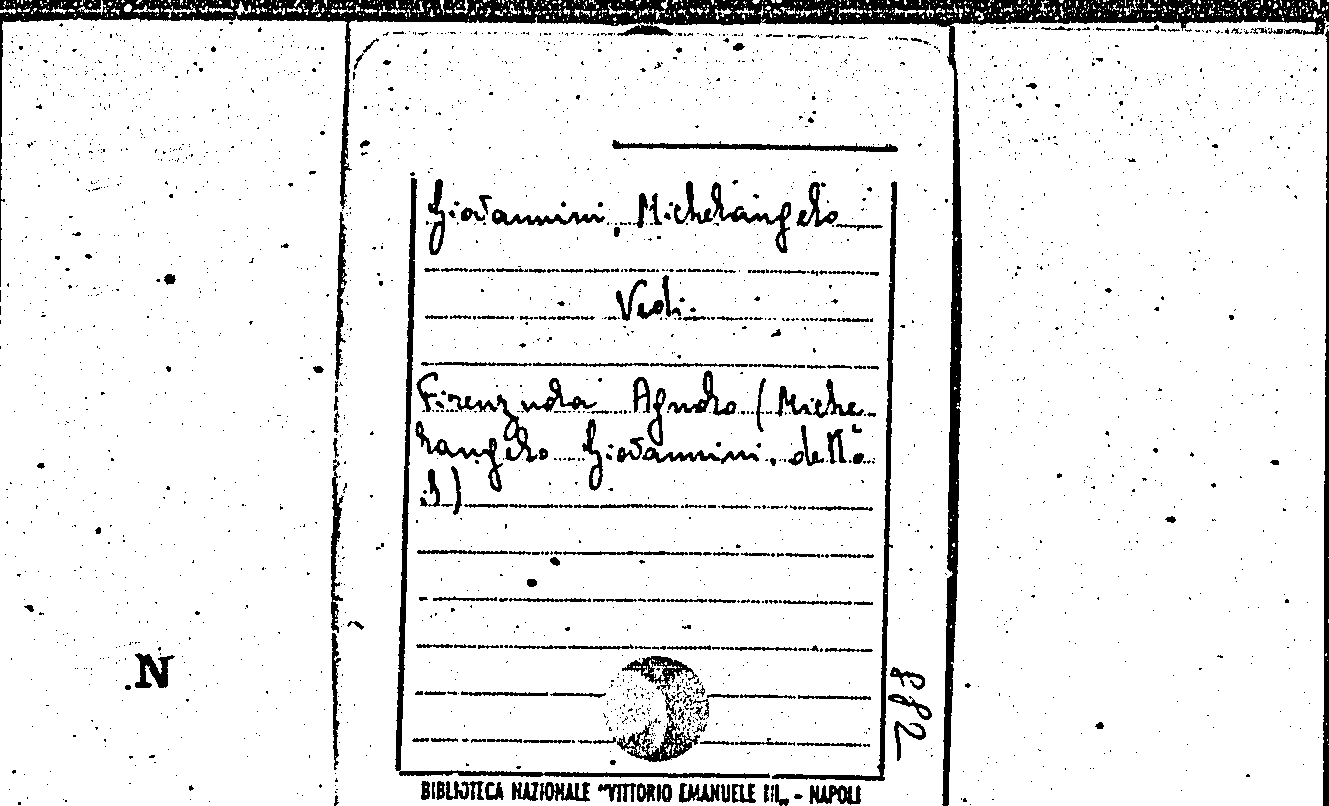 Giovannini, Michelangelo
Vedi.
Firenzuola Agnolo (Miche-
langelo Giovannini, detto
il)
N
BIBLIOTECA NAZIONALE "VITTORIO EMANUELE III„ - NAPOLI